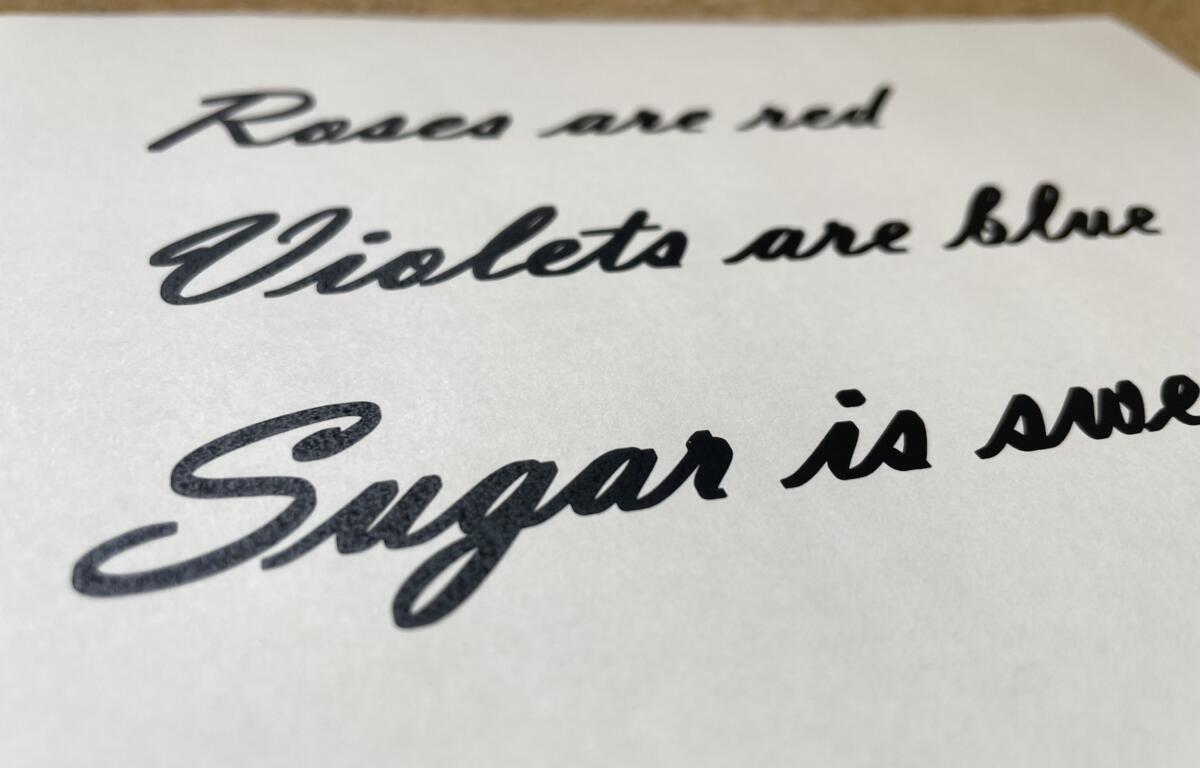 Roses are red
Violets are blue
Sugar is swe